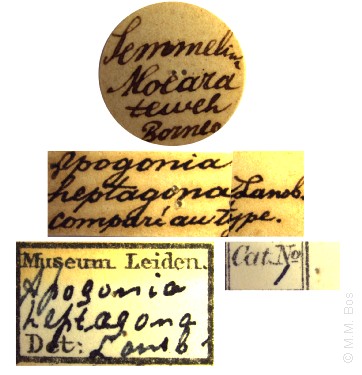 Semmelink
Moeara
teweh
Borneo
Apogonia
heptagona Lansb.
comparé au type.
Museum Leiden.
Apogonia
heptagona
Det: Lansb.
Cat. No
1
© M.M. Bos